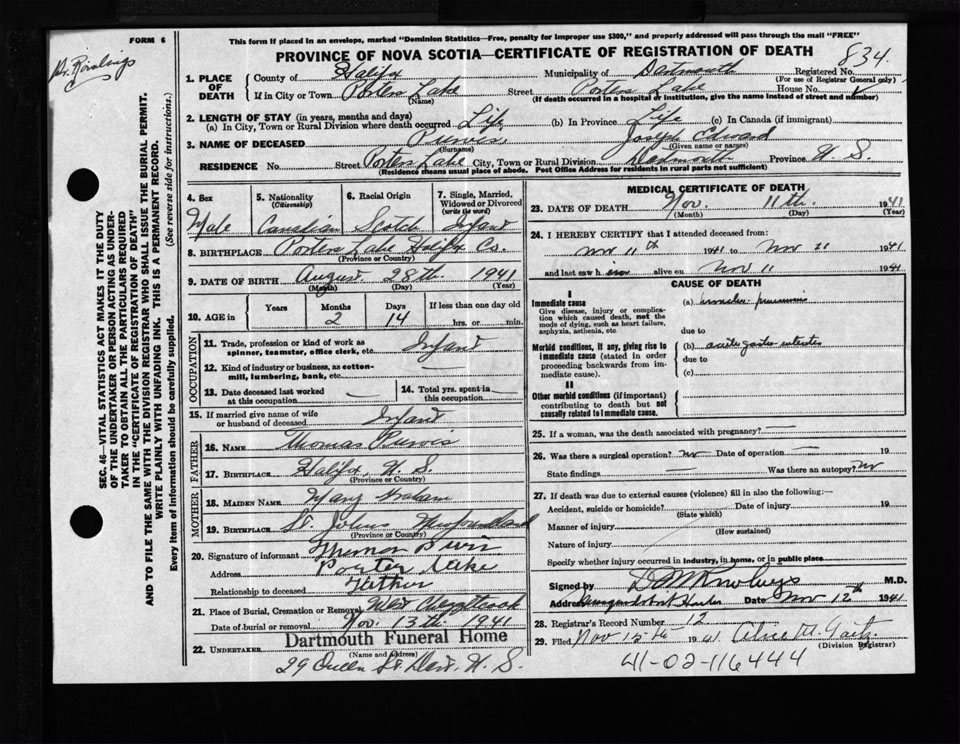 FORM 6
This form if placed in an envelope, marked "Dominion Statistics—Free, penalty for improper use $300," and properly addressed will pass through the mail "FREE"
PROVINCE OF NOVA SCOTIA—CERTIFICATE OF REGISTRATION OF DEATH
834
1. PLACE OF DEATH
County of Halifax Municipality of Dartmouth Registered No.
(For use of Registrar General only)
If in City or Town Porters Lake Street Porters Lake House No.
(Name) (If death occurred in a hospital or institution, give the name instead of street and number)
2. LENGTH OF STAY (in years, months and days)
(a) In City, Town or Rural Division where death occurred Life (b) In Province Life (c) In Canada (if immigrant)
3. NAME OF DECEASED Joseph Edward
(Surname) (Given name or names)
RESIDENCE No. Street Porters Lake City, Town or Rural Division Dartmouth Province N. S.
(Residence means usual place of abode. Post Office Address for residents in rural parts not sufficient)
4. Sex 5. Nationality (Citizenship) 6. Racial Origin 7. Single, Married, Widowed or Divorced (write the word)
Male Canadian Scotch Infant
8. BIRTHPLACE Porters Lake Halifax Co.
(Province or Country)
9. DATE OF BIRTH August 28th 1941
(Month) (Day) (Year)
10. AGE in Years Months Days If less than one day old
2 14 hrs. or min.
OCCUPATION
11. Trade, profession or kind of work as spinner, teamster, office clerk, etc. Infant
12. Kind of industry or business, as cotton-mill, lumbering, bank, etc. —
13. Date deceased last worked at this occupation — 14. Total yrs. spent in this occupation —
15. If married give name of wife or husband of deceased Infant
FATHER
16. Name Thomas
17. Birthplace Halifax, N. S.
(Province or Country)
MOTHER
18. Maiden Name Mary
19. Birthplace St. Johns Newfoundland
(Province or Country)
20. Signature of informant
Address Porter Lake
Relationship to deceased Father
21. Place of Burial, Cremation or Removal West Chezzetcook
Date of burial or removal Nov. 13th 1941
22. UNDERTAKER Dartmouth Funeral Home
(Name and Address)
29 Queen St. Dart. N. S.
MEDICAL CERTIFICATE OF DEATH
23. DATE OF DEATH Nov. 11th. 1941
(Month) (Day) (Year)
24. I HEREBY CERTIFY that I attended deceased from:
Nov 11th 1941 to Nov 11 1941
and last saw h alive on Nov 11 1941
CAUSE OF DEATH
I
Immediate cause
Give disease, injury or complication which caused death, not the mode of dying, such as heart failure, asphyxia, asthenia, etc
(a)
due to
Morbid conditions, if any, giving rise to immediate cause (stated in order proceeding backwards from immediate cause).
(b) acute gastro enteritis
due to
(c)
II
Other morbid conditions (if important) contributing to death but not causally related to immediate cause.
25. If a woman, was the death associated with pregnancy? —
26. Was there a surgical operation? no Date of operation — 19
State findings — Was there an autopsy? no
27. If death was due to external causes (violence) fill in also the following:—
Accident, suicide or homicide? Date of injury 19
(State which)
Manner of injury
(How sustained)
Nature of injury
Specify whether injury occurred in industry, in home, or in public place
Signed by M.D.
Address Date Nov 12th 1941
28. Registrar's Record Number 12
29. Filed Nov 1941
(Division Registrar)
41-02-116444
SEC. 46—VITAL STATISTICS ACT MAKES IT THE DUTY
OF THE UNDERTAKER OR PERSON ACTING AS UNDER-
TAKER TO OBTAIN ALL THE PARTICULARS REQUIRED
IN THE "CERTIFICATE OF REGISTRATION OF DEATH"
AND TO FILE THE SAME WITH THE DIVISION REGISTRAR WHO SHALL ISSUE THE BURIAL PERMIT.
WRITE PLAINLY WITH UNFADING INK. THIS IS A PERMANENT RECORD.
Every item of information should be carefully supplied. (See reverse side for instructions.)